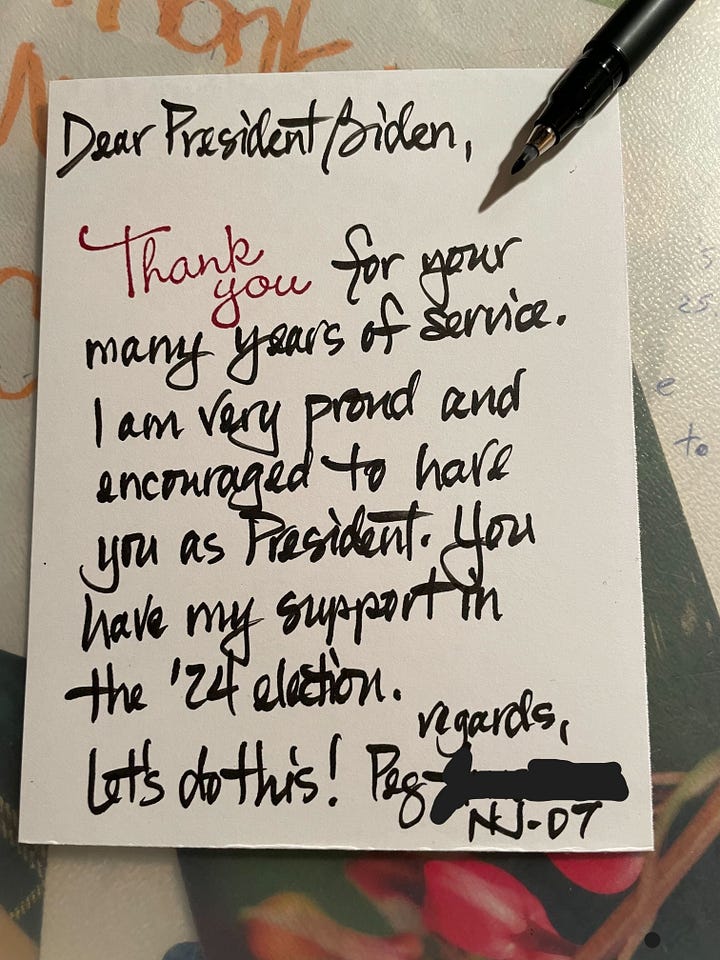 Dear President Biden,
Thank you for your
many years of service.
I am very proud and
encouraged to have
you as President. You
have my support in
the '24 election.
regards,
Let's do this! Peg
NJ-07